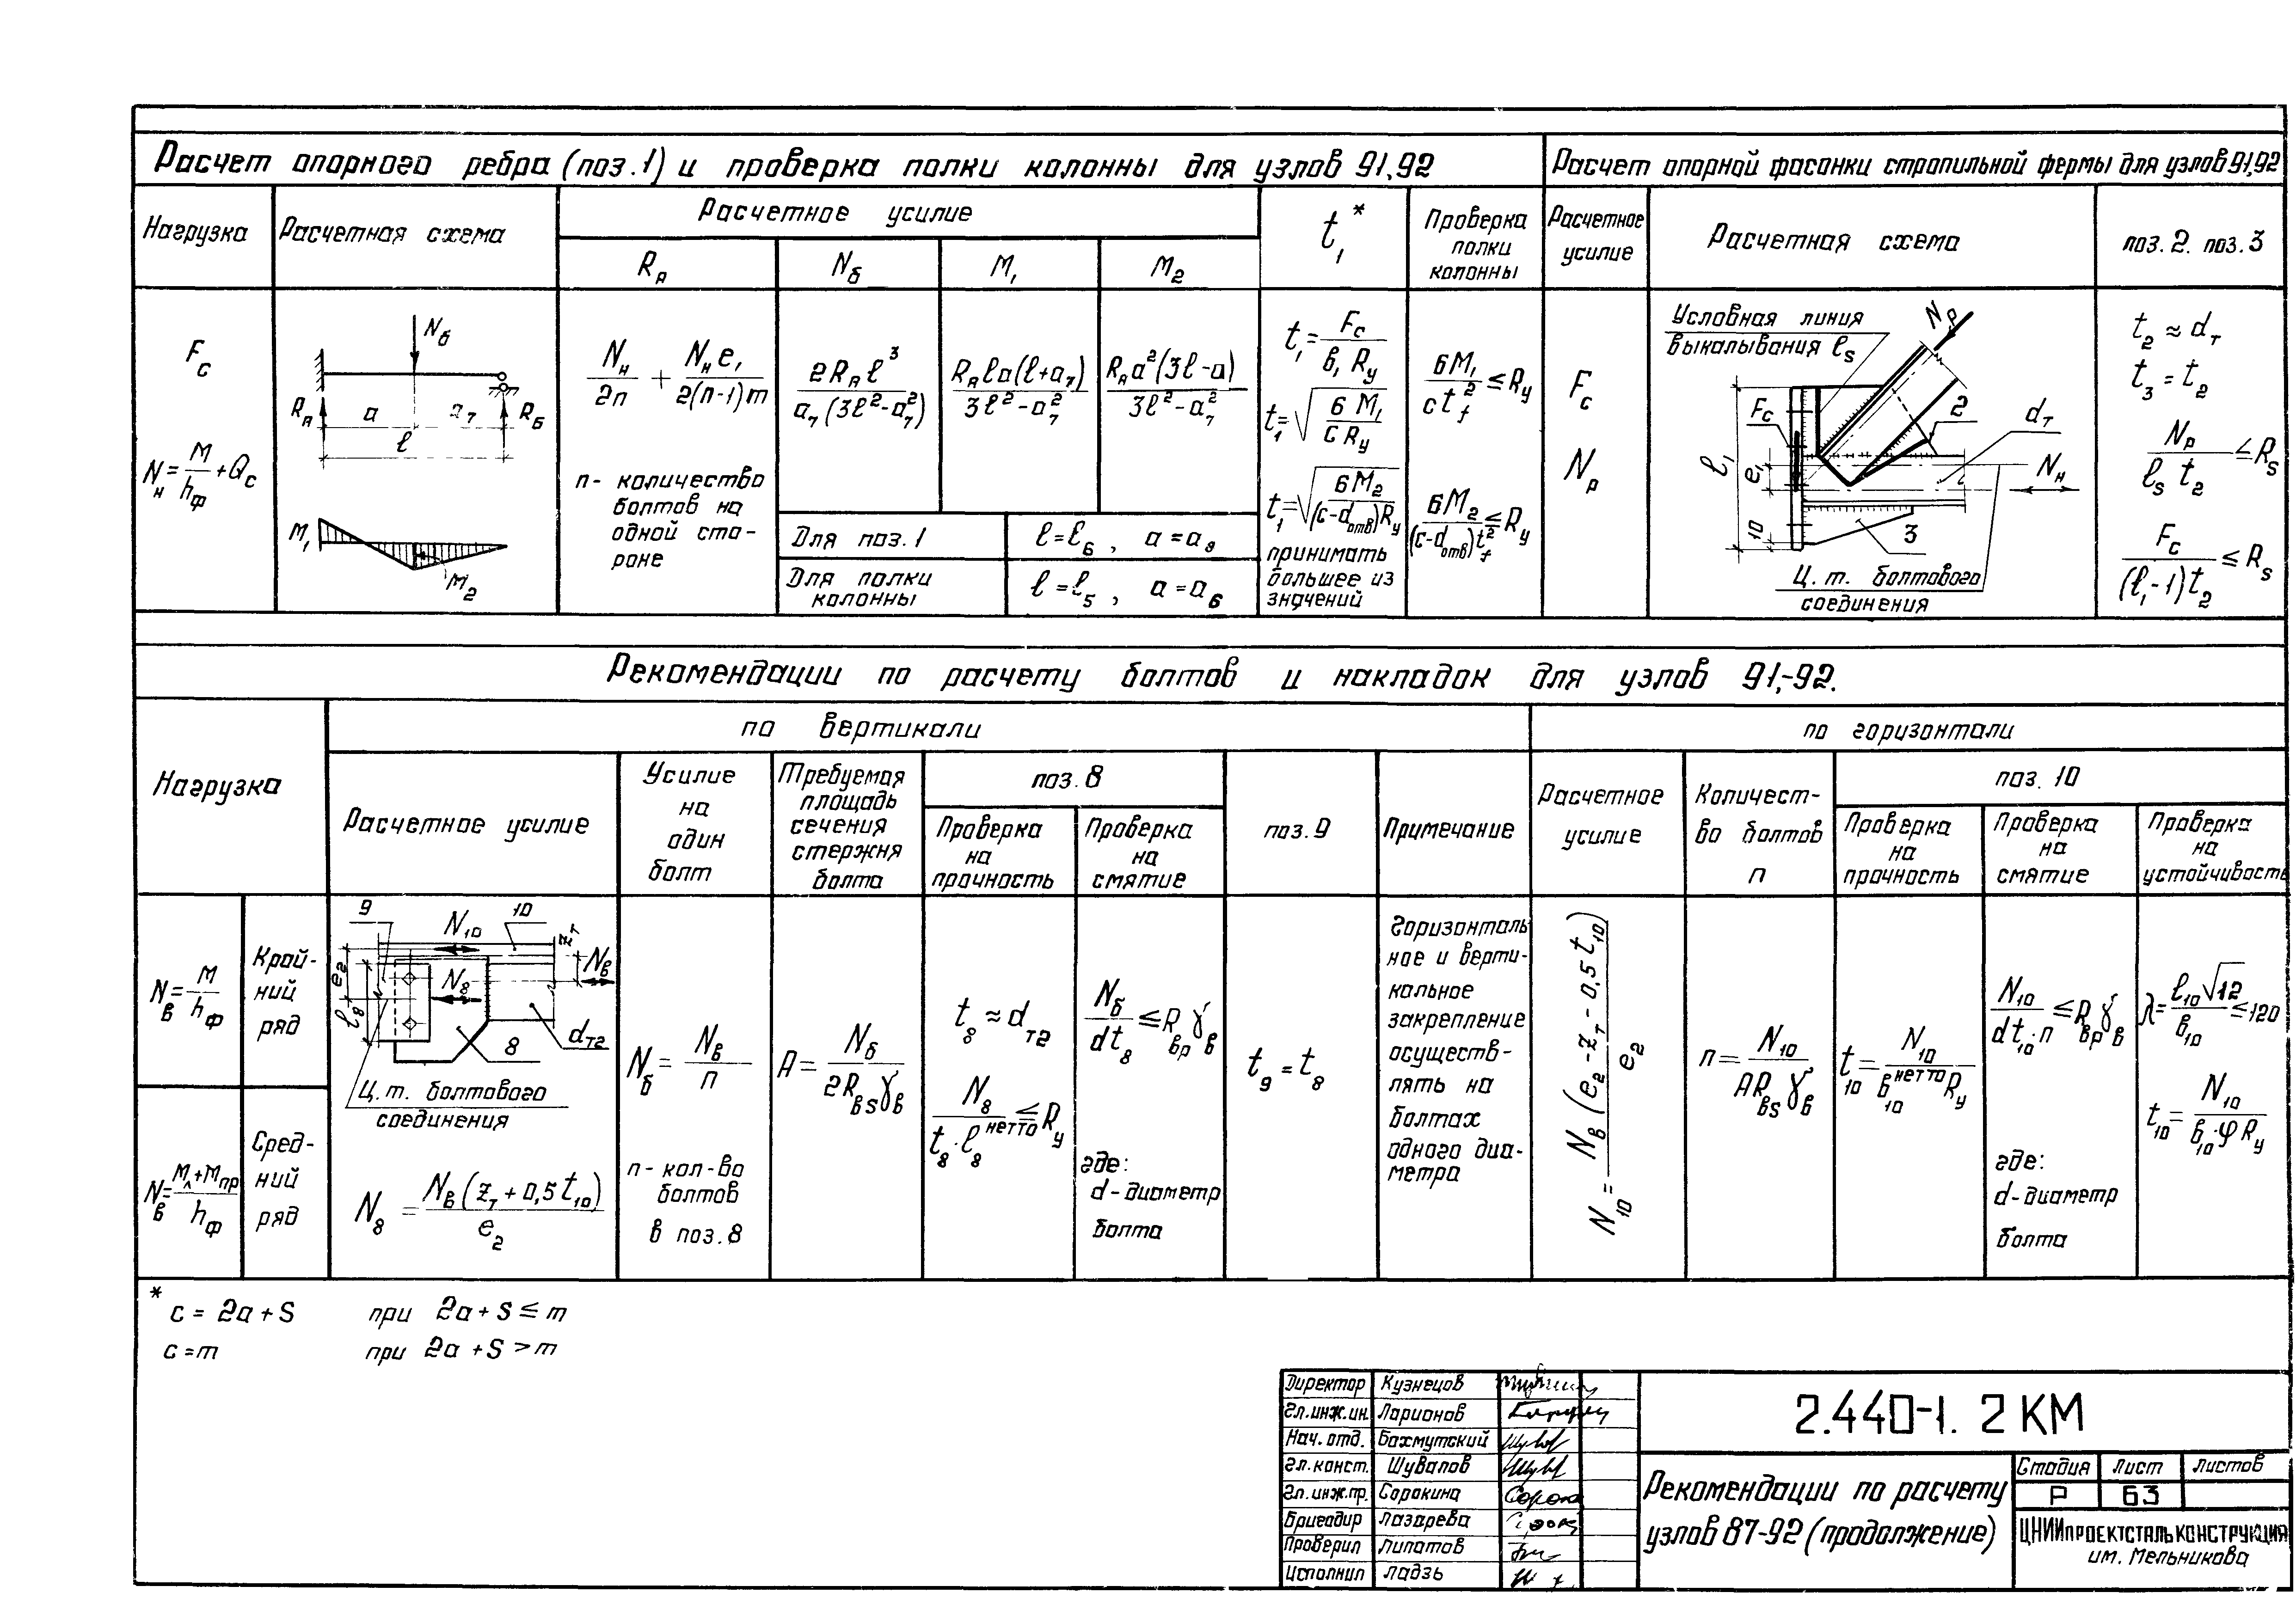 Расчет опорного ребра (поз.1) и проверка полки колонны для узлов 91,92
Расчет опорной фасонки стропильной фермы для узлов 91,92
Нагрузка
Расчетная схема
Расчетное усилие
R_А
N_б
M_1
M_2
t_1 *
Проверка
полки
колонны
Расчетное
усилие
Расчетная схема
поз. 2. поз. 3
F_c
N_н = M/h_ф + Q_c
N_б
R_А
a
a_7
R_Б
l
M_1
M_2
N_н/2n + N_н e_1/2(n-1)m
n - количество
болтов на
одной сто-
роне
2R_А l^3/a_7(3l^2-a_7^2)
R_А la(l+a_7)/3l^2-a_7^2
R_А a^2(3l-a)/3l^2-a_7^2
Для поз.1
l=l_6, a=a_8
Для полки
колонны
l=l_5, a=a_6
t_1=F_c/в_1 R_y
t_1=√6 M_1/C R_y
t_1=√6M_2/(c-d_отв)R_y
принимать
большее из
значений
6M_1/ct_f^2 ≤ R_y
6M_2/(c-d_отв)t_f^2 ≤ R_y
F_c
N_р
Условная линия
выкалывания l_s
N_р
F_c
2
d_т
l_1
e_1
N_н
10
3
Ц.т. болтового
соединения
t_2 ≈ d_т
t_3 = t_2
N_р/l_s t_2 ≤ R_s
F_c/(l_1-1)t_2 ≤ R_s
Рекомендации по расчету болтов и накладок для узлов 91,-92.
Нагрузка
по вертикали
по горизонтали
Расчетное усилие
Усилие
на
один
болт
Требуемая
площадь
сечения
стержня
болта
поз. 8
Проверка
на
прочность
Проверка
на
смятие
поз. 9
Примечание
Расчетное
усилие
Количест-
во болтов
n
поз. 10
Проверка
на
прочность
Проверка
на
смятие
Проверка
на
устойчивость
N_в=M/h_ф
Край-
ний
ряд
N_в=M_л+M_пр/h_ф
Сред-
ний
ряд
9
N_10
10
z_т
N_в
e_2
N_8
l_8
8
d_т2
Ц.т. болтового
соединения
N_8 = N_в(z_т+0,5t_10)/e_2
N_б = N_в/n
n - кол-во
болтов
в поз. 8
A = N_б/2R_вs γ_в
t_8 ≈ d_т2
N_8/t_8·l_8^нетто ≤ R_y
N_б/dt_8 ≤ R_вр γ_в
где:
d - диаметр
болта
t_9 = t_8
Горизонталь
ное и верти-
кальное
закрепление
осуществ-
лять на
болтах
одного диа-
метра
N_10 = N_в(e_2-z_т-0,5t_10)/e_2
n = N_10/AR_вs γ_в
t_10 = N_10/в_10^нетто R_y
N_10/dt_10·n ≤ R_вр γ_в
где:
d - диаметр
болта
λ = l_10√12/в_10 ≤ 120
t_10 = N_10/в_10·φ R_y
* c = 2a + S при 2a + s ≤ m
c = m при 2a + S > m
Директор Кузнецов
Гл.инж.ин. Ларионов
Нач. отд. Бахмутский
Гл.конст. Шувалов
Гл.инж.пр. Сорокина
Бригадир Лазарева
Проверил Липатов
Исполнил Ладзь
2.440-1. 2 КМ
Рекомендации по расчету
узлов 87-92 (продолжение)
Стадия Лист Листов
Р 63
ЦНИИпроектстальконструкция
им. Мельникова